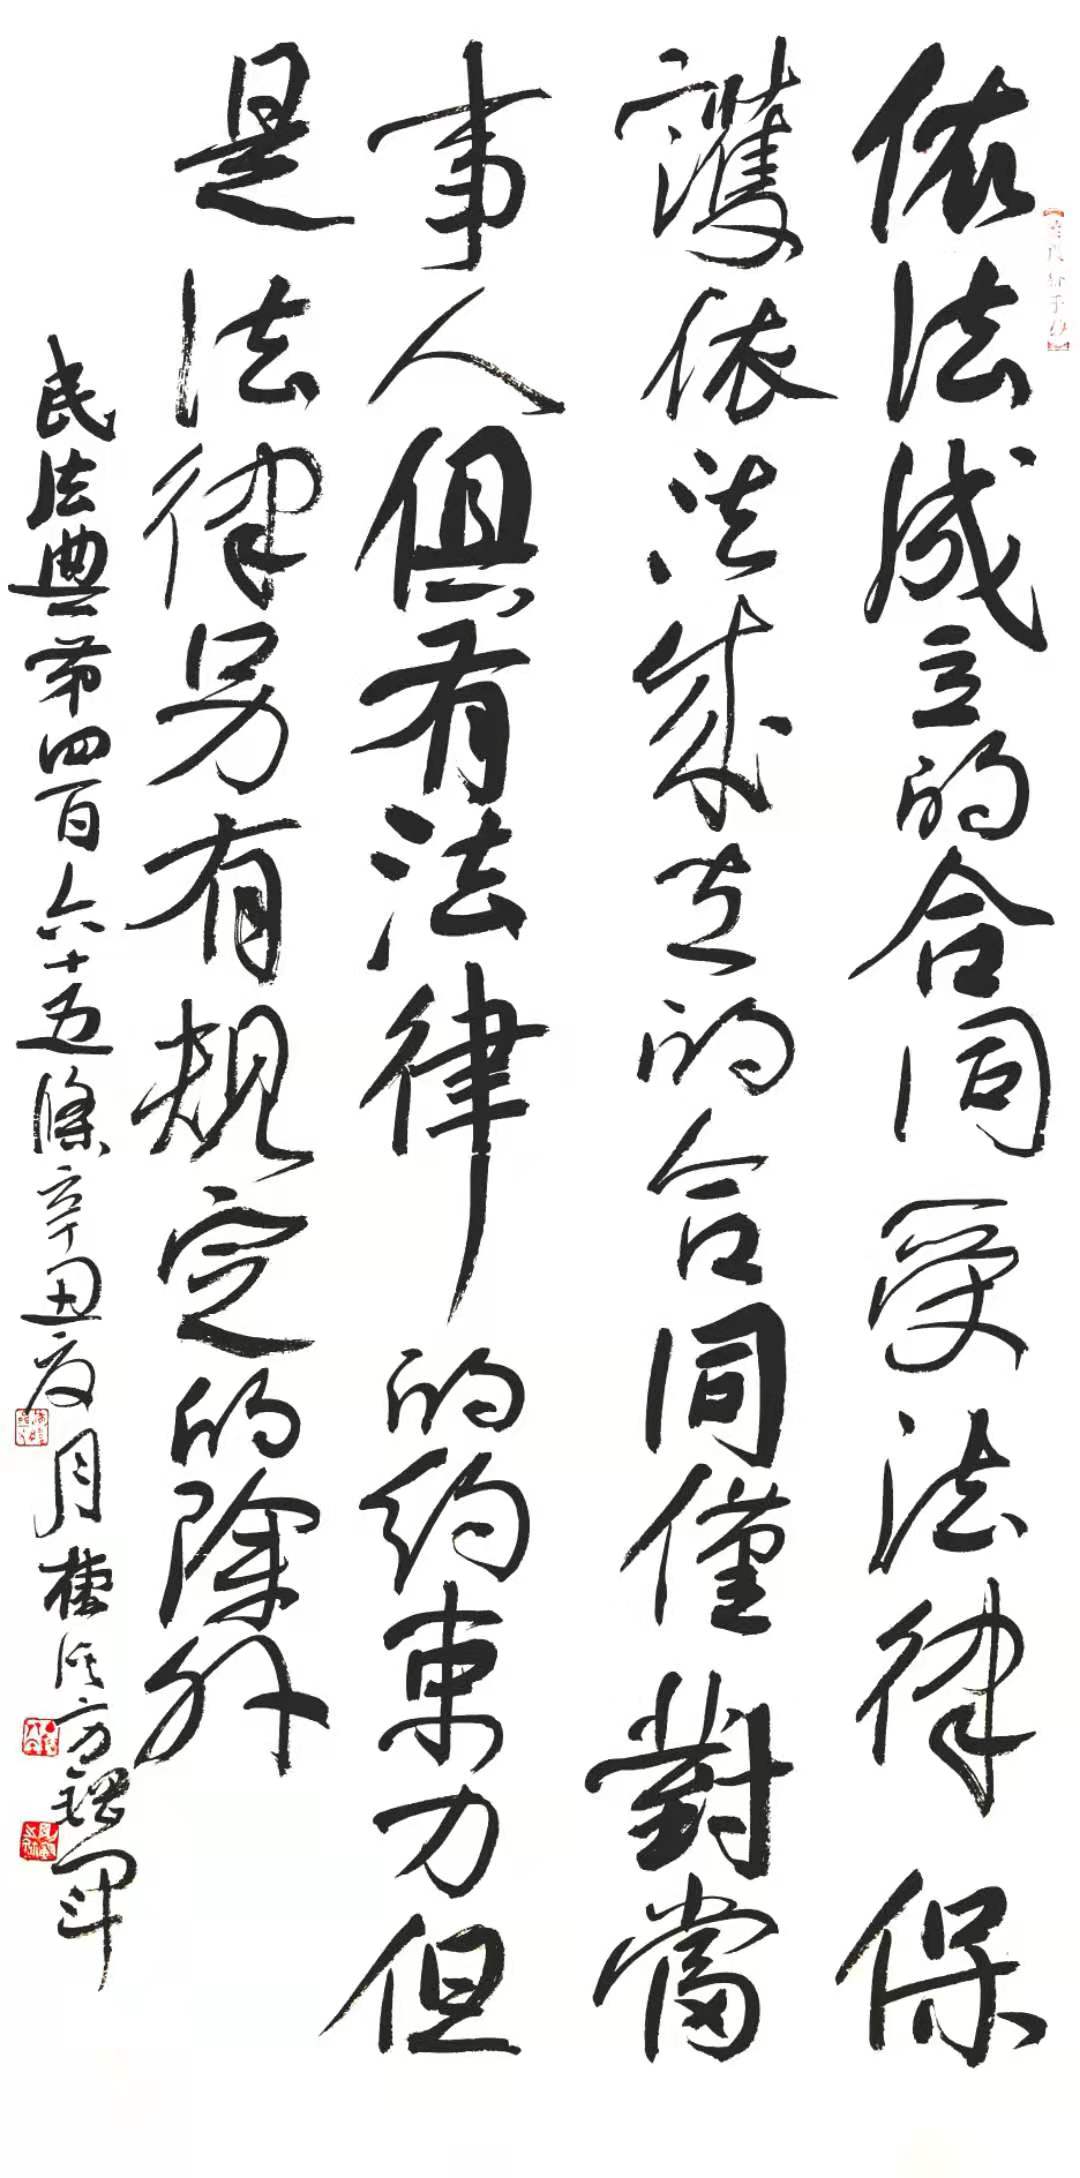 依法成立的合同受法律保
護依法成立的合同僅對當
事人俱有法律的約束力但
是法律另有規定的除外
民法典第四百六十五條辛丑夏月